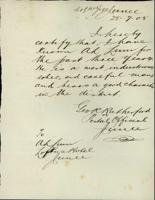 25-9-05
I hereby
certify that I have
known Ah Lum for
the past three years
He is a most industrious
sober, and careful man
and bears a good character
in the district
Geo Rutherford
Postal Official
Junee
To
Ah Lum
Hotel
Junee